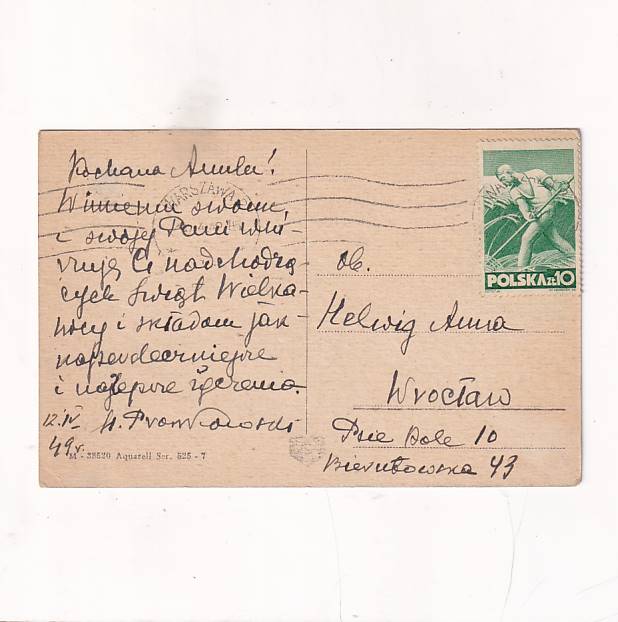 Kochana Anulu!
W imieniu swoim
i swojej Pani win-
szuję Ci nadchodzą
cych Świąt Wielka-
nocy i składam jak-
najserdeczniejsze
i najlepsze życzenia.
12.IV
49 r.
M - 38520 Aquarell Ser. 525 - 7
WARSZAWA
POLSKA ZŁ 10
Ob.
Helwig Anna
Wrocław
Psie Pole 10
Bierutowska 43